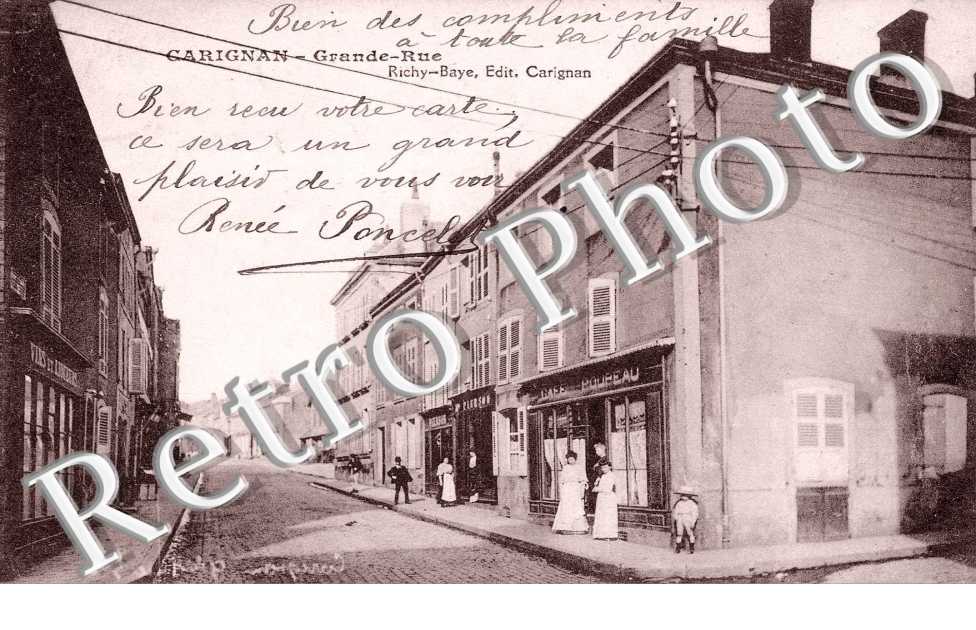 Bien des compliments
à toute la famille
CARIGNAN - Grande-Rue
Richy-Baye, Edit. Carignan
Bien recu votre carte.
ce sera un grand
plaisir de vous voir
Renée Poncelet
Retro Photo
VINS ET LIQUEURS